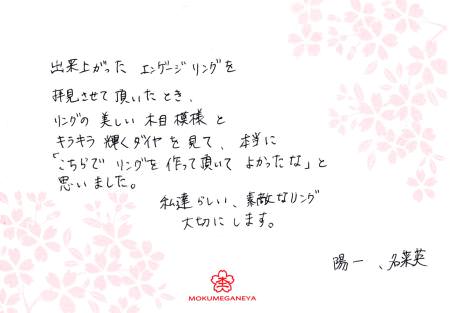 出来上がった エンゲージリングを
拝見させて頂いたとき、
リングの 美しい 木目模様 と
キラキラ 輝くダイヤ を見て、本当に
「こちらで リングを 作って頂いて よかったな」と
思いました。
私達らしい、素敵なリング
大切にします。
陽一 、名菜英
MOKUMEGANEYA